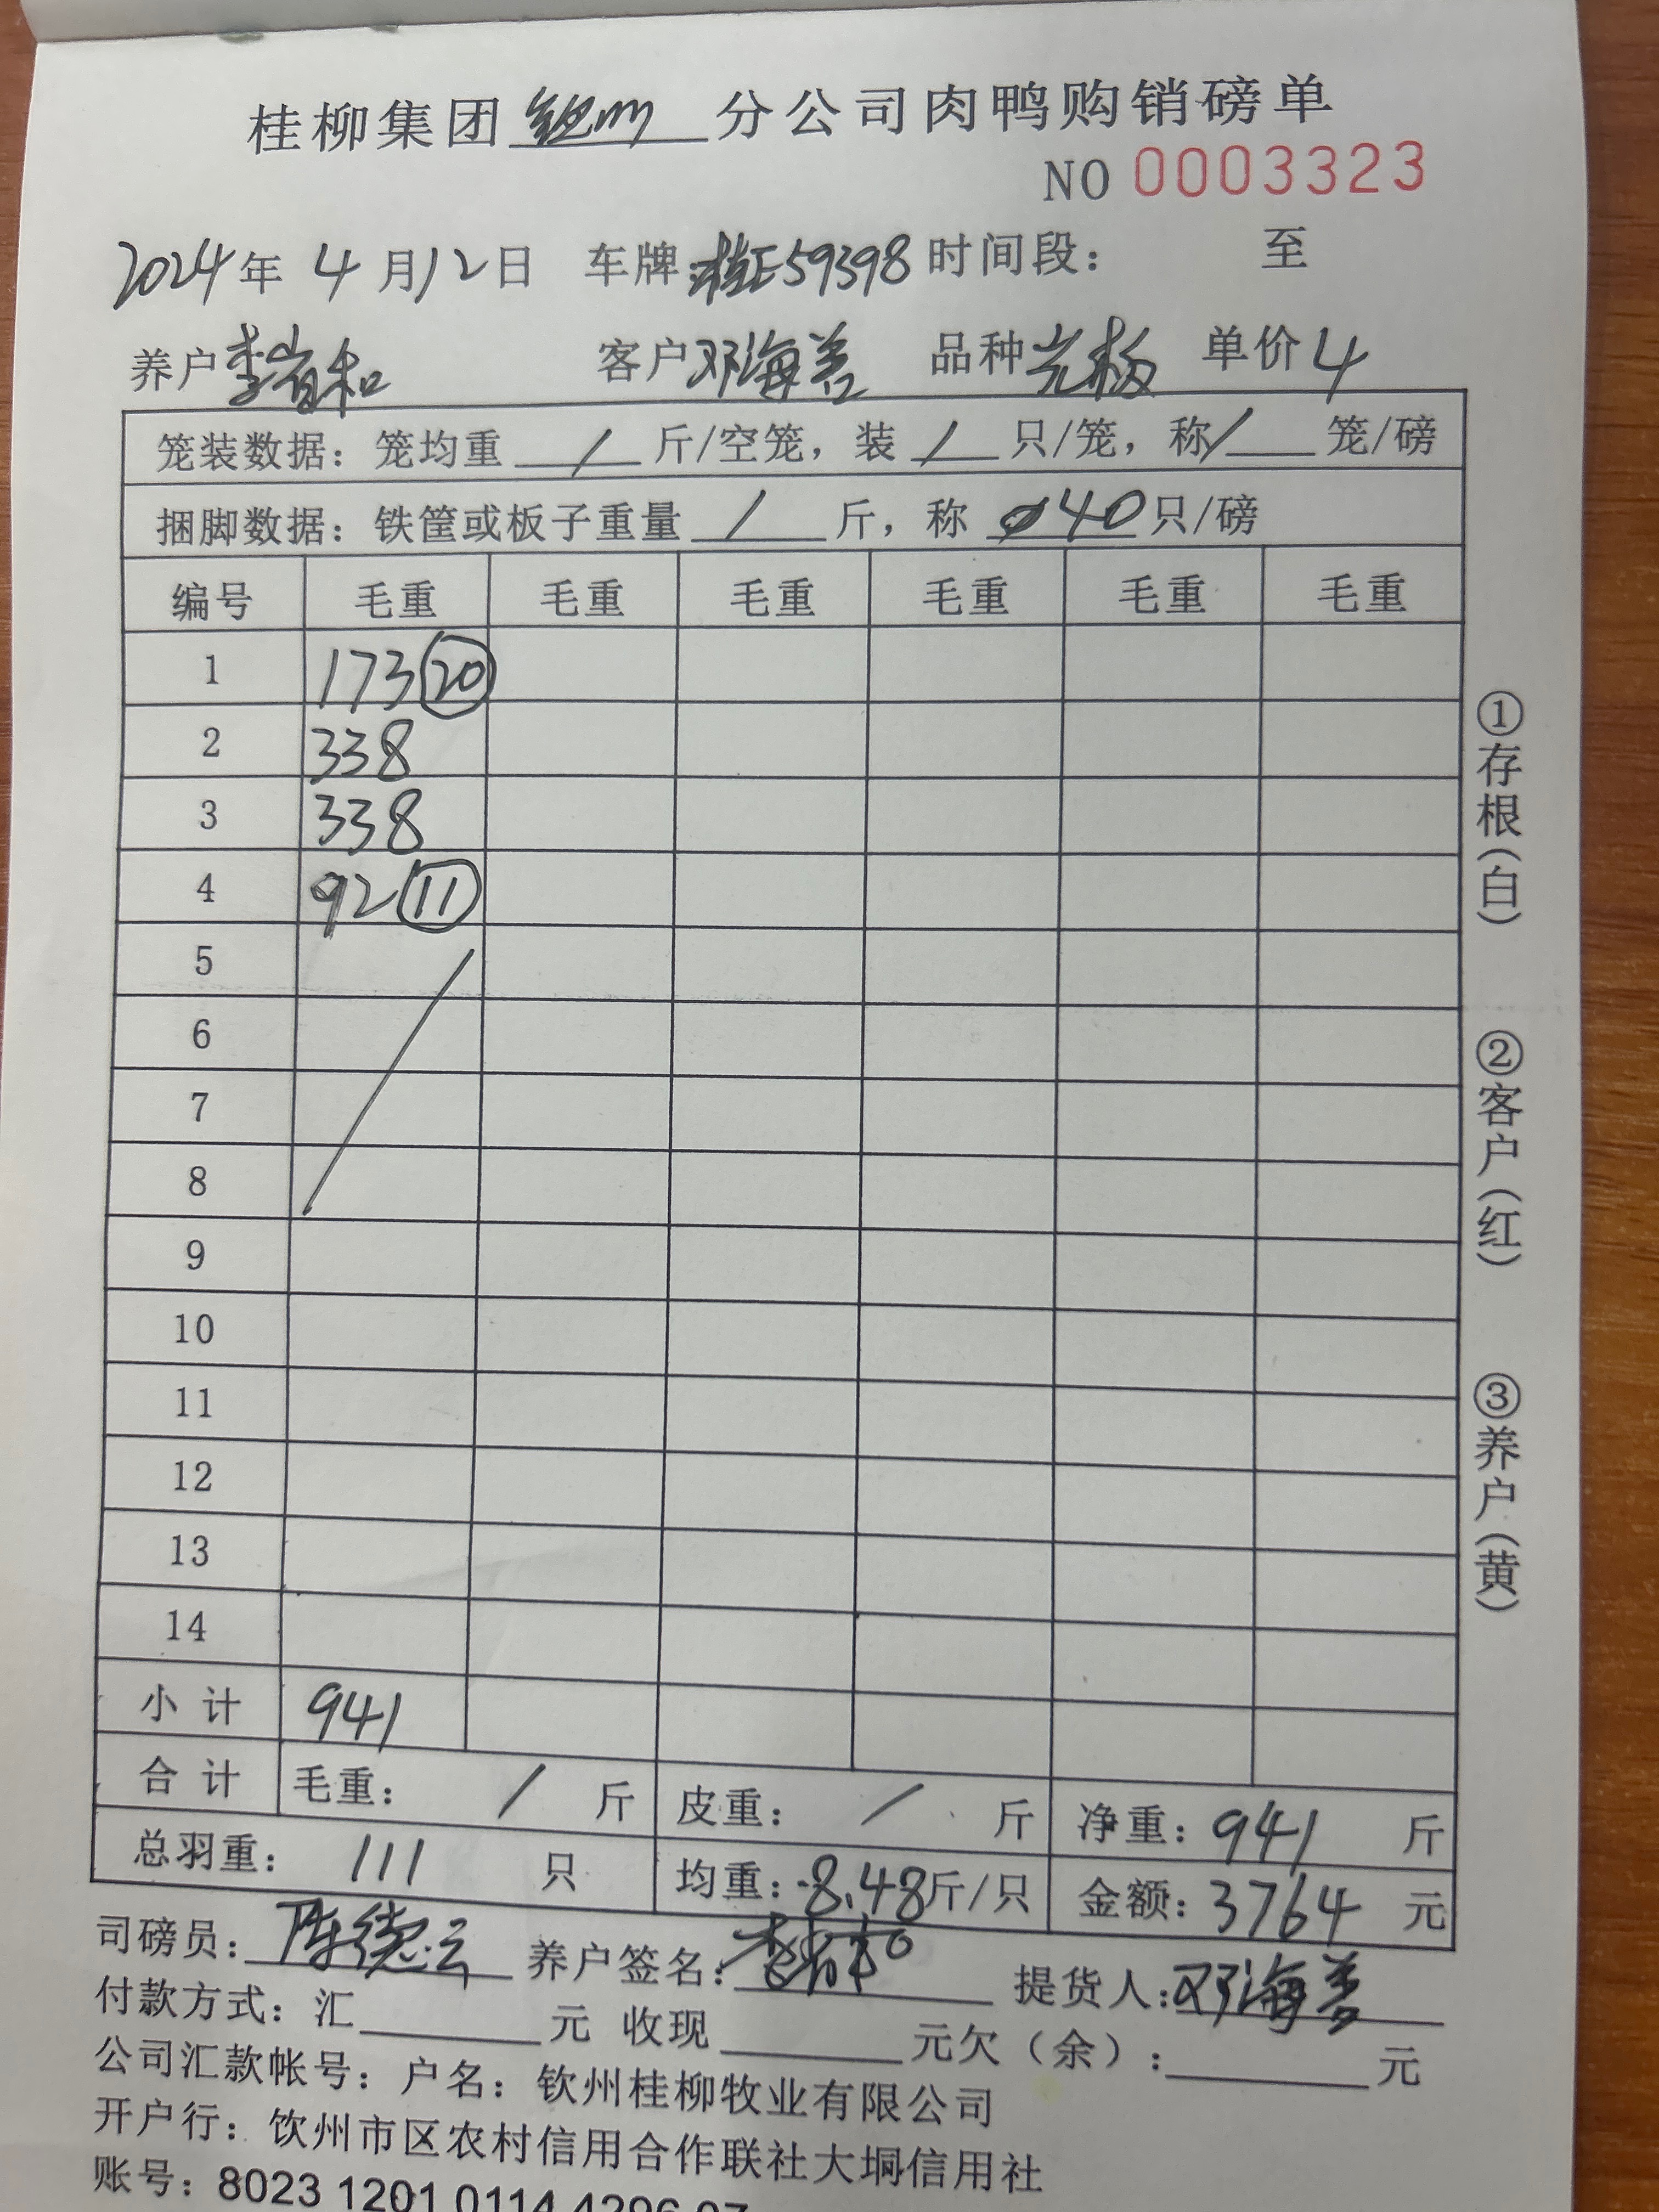 桂柳集团钦州分公司肉鸭购销磅单
NO 0003323
2024年 4月12日 车牌:桂E59398 时间段: 至
养户李 和 客户邓海善 品种光板 单价4
笼装数据: 笼均重 / 斤/空笼, 装 / 只/笼, 称 / 笼/磅
捆脚数据: 铁筐或板子重量 / 斤, 称 40只/磅
编号 毛重 毛重 毛重 毛重 毛重 毛重
1 173 ⑳
2 338
3 338
4 92 ⑪
5
6
7
8
9
10
11
12
13
14
小计 941
合计 毛重: / 斤 皮重: / 斤 净重: 941 斤
总羽重: 111 只 均重: 8.48斤/只 金额: 3764 元
司磅员: 陈德云 养户签名: 李 和 提货人: 邓海善
付款方式: 汇 元 收现 元欠(余): 元
公司汇款帐号: 户名: 钦州桂柳牧业有限公司
开户行: 饮州市区农村信用合作联社大垌信用社
账号: 8023 1201 0114 4296 07
①存根(白)
②客户(红)
③养户(黄)